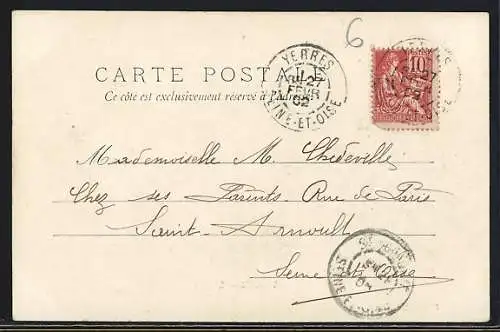 6
YERRES
27
FEVR
02
SEINE-ET-OISE
10
CARTE POSTALE
Ce côté est exclusivement réservé à l'adresse
Mademoiselle M. Chedeville
Chez ses Parents Rue de Paris
Saint-Arnoult
Seine et Oise